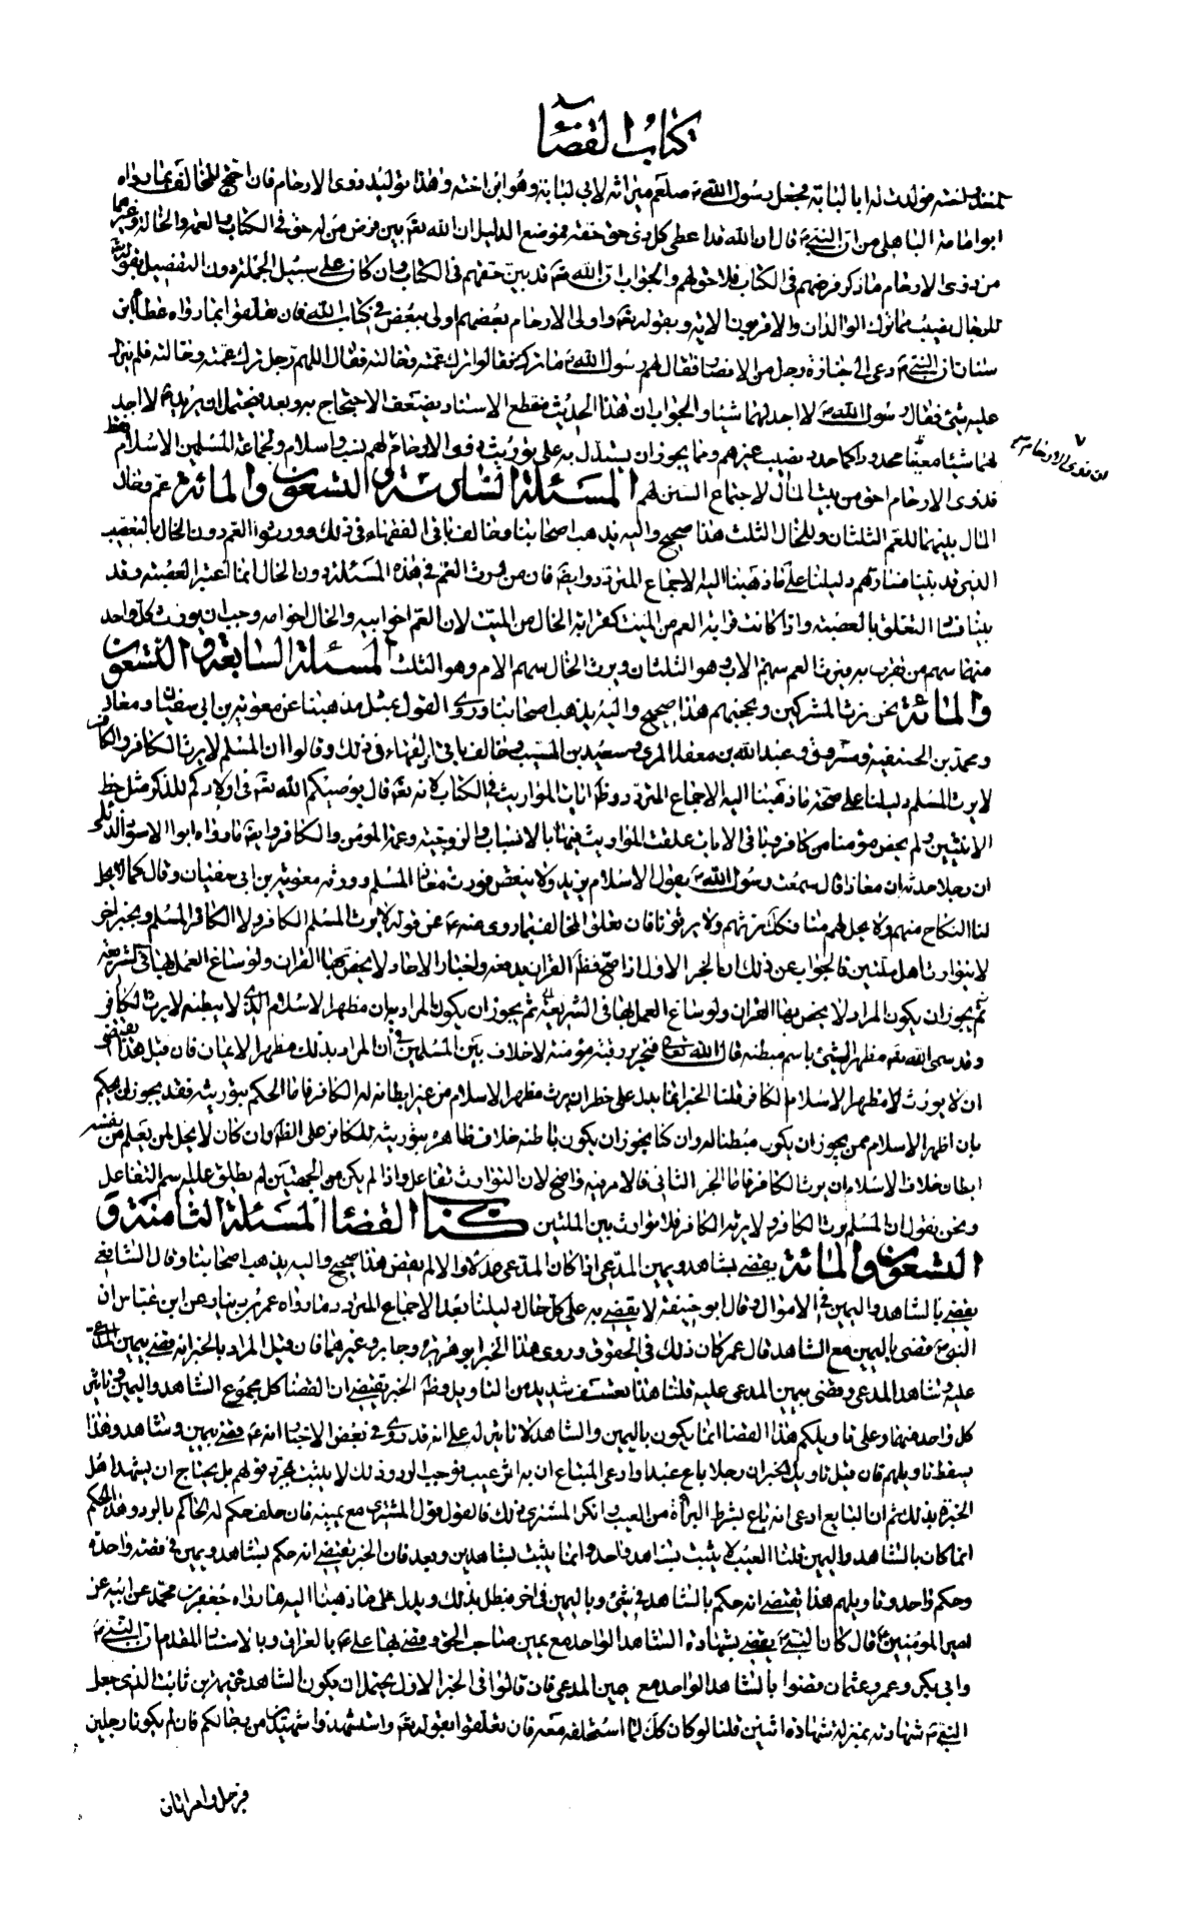 كتاب القضاء
فولدت له ابا لبابة فجعل رسول الله صلعم ميراثه لابى لبابة وهو ابن اخته وهذا توليد ذوى الارحام فان احتج المخالف بما رواه
ابو امامة الباهلى من ان النبي ع قال ان الله قد اعطى كل ذى حق حقه فموضع الدليل ان الله تع بين فرض من له حق فى الكتاب والعمة والخالة وغيرهما
من ذوى الارحام ما ذكر فرضهم فى الكتاب فلا حق لهم والجواب ان الله تع قد بين حقهم فى الكتاب وان كان على سبيل الجملة دون التفصيل بقوله
للرجال نصيب مما ترك الوالدان والاقربون الاية وبقوله تع واولى الارحام بعضهم اولى ببعض فى كتاب الله فان تعلقوا بما رواه عطا بن
ان النبي ع دعى الى جنازة رجل من الانصار فقال لهم رسول الله ما ترك فقالوا ترك عمته وخالته فقال اللهم رجل ترك عمته وخالته فلم ينزل
عليه شئ فقال رسول الله لا اجد لهما شيئا والجواب ان هذا الحديث مقطع الاسناد يضعف الاحتجاج به وبعد فيحتمل ان يريد ع لا اجد
لهما شيئا معينا محدودا كما حدد نصيب غيرهم ومما يجوز ان يستدل به على توريث ذوى الارحام لهم نسب واسلام ولجماعة المسلمين الاسلام فقط
من ذوى الارحام
فذوى الارحام احق من بيت المال لاجتماع السببين لهم المسئلة السادسة والتسعون والمائة عم وخال
المال بينهما للعم الثلثان وللخال الثلث هذا صحيح واليه يذهب اصحابنا وخالف باقى الفقهاء فى ذلك وورثوا العم دون الخال بالتعصيب
الذى قد بينا فساده دليلنا على ما ذهبنا اليه الاجماع المتردد وايضا فان من ورث العم فى هذه المسئلة دون الخال انما اعتبر العصبة وقد
بينا فساد التعلق بالعصبة واذا كانت قرابة العم من الميت كقرابة الخال من الميت لان العم اخو ابيه والخال اخو امه وجب ان يورث كل واحد
منهما سهم من تقرب به فيرث العم سهم الاب وهو الثلثان ويرث الخال سهم الام وهو الثلث المسئلة السابعة والتسعون
والمائة نحن نرث المشركين ونحجبهم هذا صحيح واليه يذهب اصحابنا وروى القول بمثل مذهبنا عن معوية بن ابى سفيان ومعاذ
ومحمد بن الحنفية ومسروق وعبد الله بن معقل المزى وسعيد بن المسيب وخالف باقى الفقهاء فى ذلك وقالوا ان المسلم لا يرث الكافر والكافر
لا يرث المسلم دليلنا على صحة ما ذهبنا اليه الاجماع المتردد وظاهر ايات المواريث فى الكتاب لانه تع قال يوصيكم الله تع فى اولادكم للذكر مثل حظ
الانثيين ولم يخص مؤمنا من كافر وباقى الايات علقت المواريث فيها بالانساب والزوجية وعم المؤمن والكافر وايضا ما رواه ابو الاسود الدئلى
ان رجلا حدثه ان معاذا قال سمعت رسول الله يقول الاسلام يزيد ولا ينقص فورث معاذ المسلم وورثه معوية بن ابى سفيان وقال كما يحل
لنا النكاح منهم ولا يحل لهم منا فكذلك نرثهم ولا يرثونا فان تعلق المخالف بما روى عنه ع من قوله لا يرث المسلم الكافر ولا الكافر المسلم وبخبر اخر
لا يتوارث اهل ملتين فالجواب عن ذلك ان الخبر الاول اذا صح فظاهر القران يدفعه واخبار الاحاد لا يخص بها القران ولو ساغ العمل بها فى الشريعة
ثم يجوز ان يكون المراد لا يخص بها القران ولو ساغ العمل بها فى الشريعة ثم يجوز ان يكون المراد به ان مظهر الاسلام الذى لا يبطنه لا يرث الكافر
وقد سمى الله تع مظهر الشئ باسم مبطنه قال الله تع فتحرير رقبة مؤمنة لا خلاف بين المسلمين فى ان المراد بذلك مظهر الايمان فان قيل هذا يقتضى
ان لا يورث مظهر الاسلام الكافر قلنا الخبر انما يدل على خطر ان يرث مظهر الاسلام من غير ابطانه له الكافر فاما الحكم بتوريثه فقد يجوز ان يحكم
بان اظهر الاسلام ممن يجوز ان يكون مبطنا له وان كنا نجوز ان يكون باطنه خلاف ظاهره بتوريثه للكافر على الظاهر وان كان لا يحل لمن يعلم من نفسه
ابطان خلاف الاسلام ان يرث الكافر فاما الخبر الثانى فالامر فيه واضح لان التوارث تفاعل واذا لم يكن من الجهتين لم يطلق عليه اسم التفاعل
ونحن نقول ان المسلم يرث الكافر ولا يرثه الكافر فلا توارث بين الملتين كتاب القضاء المسئلة الثامنة و
التسعون والمائة يقضى بشاهد ويمين المدعى اذا كان المدعى عدلا والا لم يقض هذا صحيح واليه يذهب اصحابنا وقال الشافعى
يقضى بالشاهد واليمين فى الاموال وقال ابو حنيفة لا يقضى به على كل حال دليلنا بعد الاجماع المتردد ما رواه عمرو بن دينار عن ابن عباس ان
النبي ع قضى باليمين مع الشاهد قال عمر كان ذلك فى الحقوق وروى هذا الخبر ابو هريرة وجابر وغيرهما فان قيل المراد بالخبر انه قضى بيمين المدعى
عليه وشاهد المدعى وقضى بيمين المدعى عليه قلنا هذا تعسف شديد من التاويل وظاهر الخبر يقتضى ان القضاء كان بمجموع الشاهد واليمين وتاثير
كل واحد منهما وعلى تاويلكم هذا القضا انما يكون باليمين والشاهد لا تاثير له على انه قد روى فى بعض الاخبار انه ع قضى بيمين وشاهد وهذا
يسقط تاويلهم فان قيل تاويل الخبر ان رجلا باع عبدا وادعى المبتاع ان به اثر عيب يوجب الرد وذلك لا يثبت بمجرد قولهم بل يحتاج ان يشهد اهل
الخبرة بذلك ثم ان البايع ادعى انه باع بشرط البرأة من العيب وانكر المشترى ذلك فالقول قول المشترى مع يمينه فان حلف حكم له الحاكم بالرد وهذا الحكم
انما كان بالشاهد واليمين قلنا العيب لا يثبت بشاهد واحد وانما يثبت بشاهدين وبعد فان الخبر يقتضى انه حكم بشاهد ويمين فى قضية واحدة
وحكم واحد وتاويلهم هذا يقتضى انه حكم بالشاهد فى شئ وباليمين فى اخر فبطل بذلك ويدل على ما ذهبنا اليه ما رواه جعفر بن محمد عن ابيه عن
امير المؤمنين ع قال كان النبي ع يقضى بشهادة الشاهد الواحد مع يمين صاحب الحق وقضى بها على ع بالعراق وبالاسناد المقدم ان النبي ع
وابى بكر وعمر وعثمان قضوا بالشاهد الواحد مع يمين المدعى فان قالوا فى الخبر الاول يحتمل ان يكون الشاهد خزيمة بن ثابت الذى جعل
النبي ع شهادته بمنزلة شهادة اثنين قلنا لو كان كذلك لما استحلفه معه فان تعلقوا بقوله تع واستشهدوا شهيدين من رجالكم فان لم يكونا رجلين
فرجل وامراتان